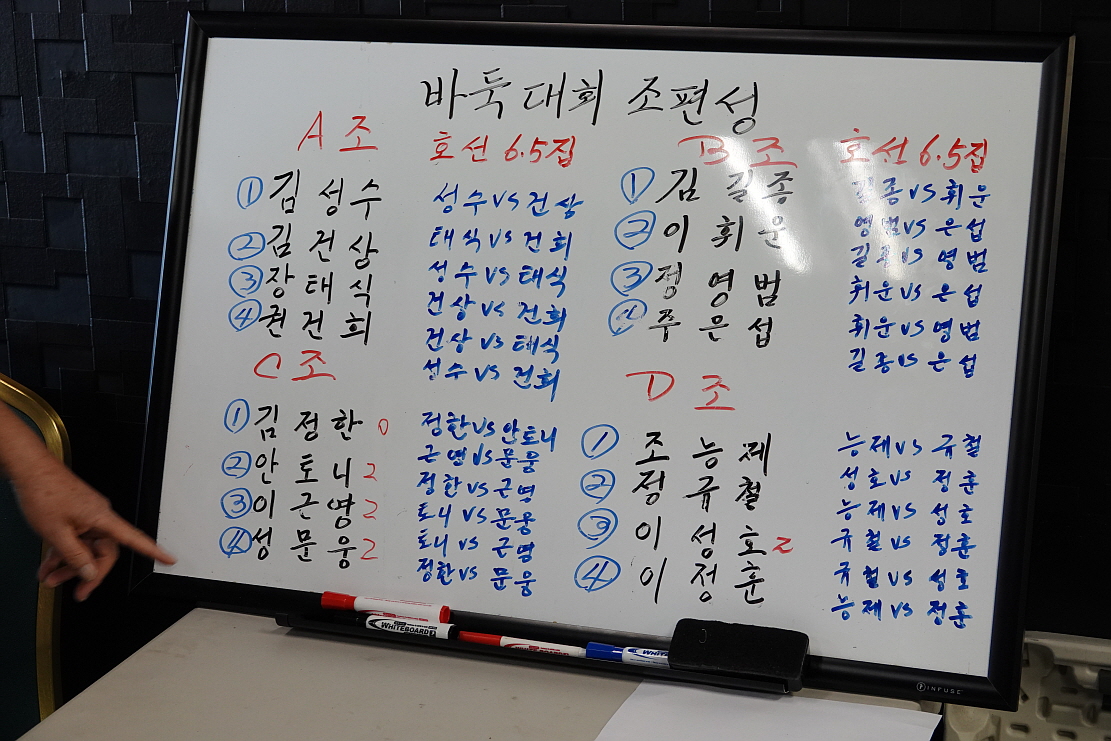 바둑대회 조편성
A조 호선 6.5집
① 김성수
② 김건상
③ 장태식
④ 권건희
성수 vs 건상
태식 vs 건희
성수 vs 태식
건상 vs 건희
건상 vs 태식
성수 vs 건희
B조 호선 6.5집
① 김길종
② 이휘운
③ 정영범
④ 주은섭
길종 vs 휘운
영범 vs 은섭
길종 vs 영범
휘운 vs 은섭
휘운 vs 영범
길종 vs 은섭
C조
① 김정한 0
② 안토니 2
③ 이근영 2
④ 성문웅 2
정한 vs 안토니
근영 vs 문웅
정한 vs 근영
토니 vs 문웅
토니 vs 근영
정한 vs 문웅
D조
① 조능제
② 정규철
③ 이성호 2
④ 이정훈
능제 vs 규철
성호 vs 정훈
능제 vs 성호
규철 vs 정훈
규철 vs 성호
능제 vs 정훈
WHITEBOARD
WHITE
INFUSE